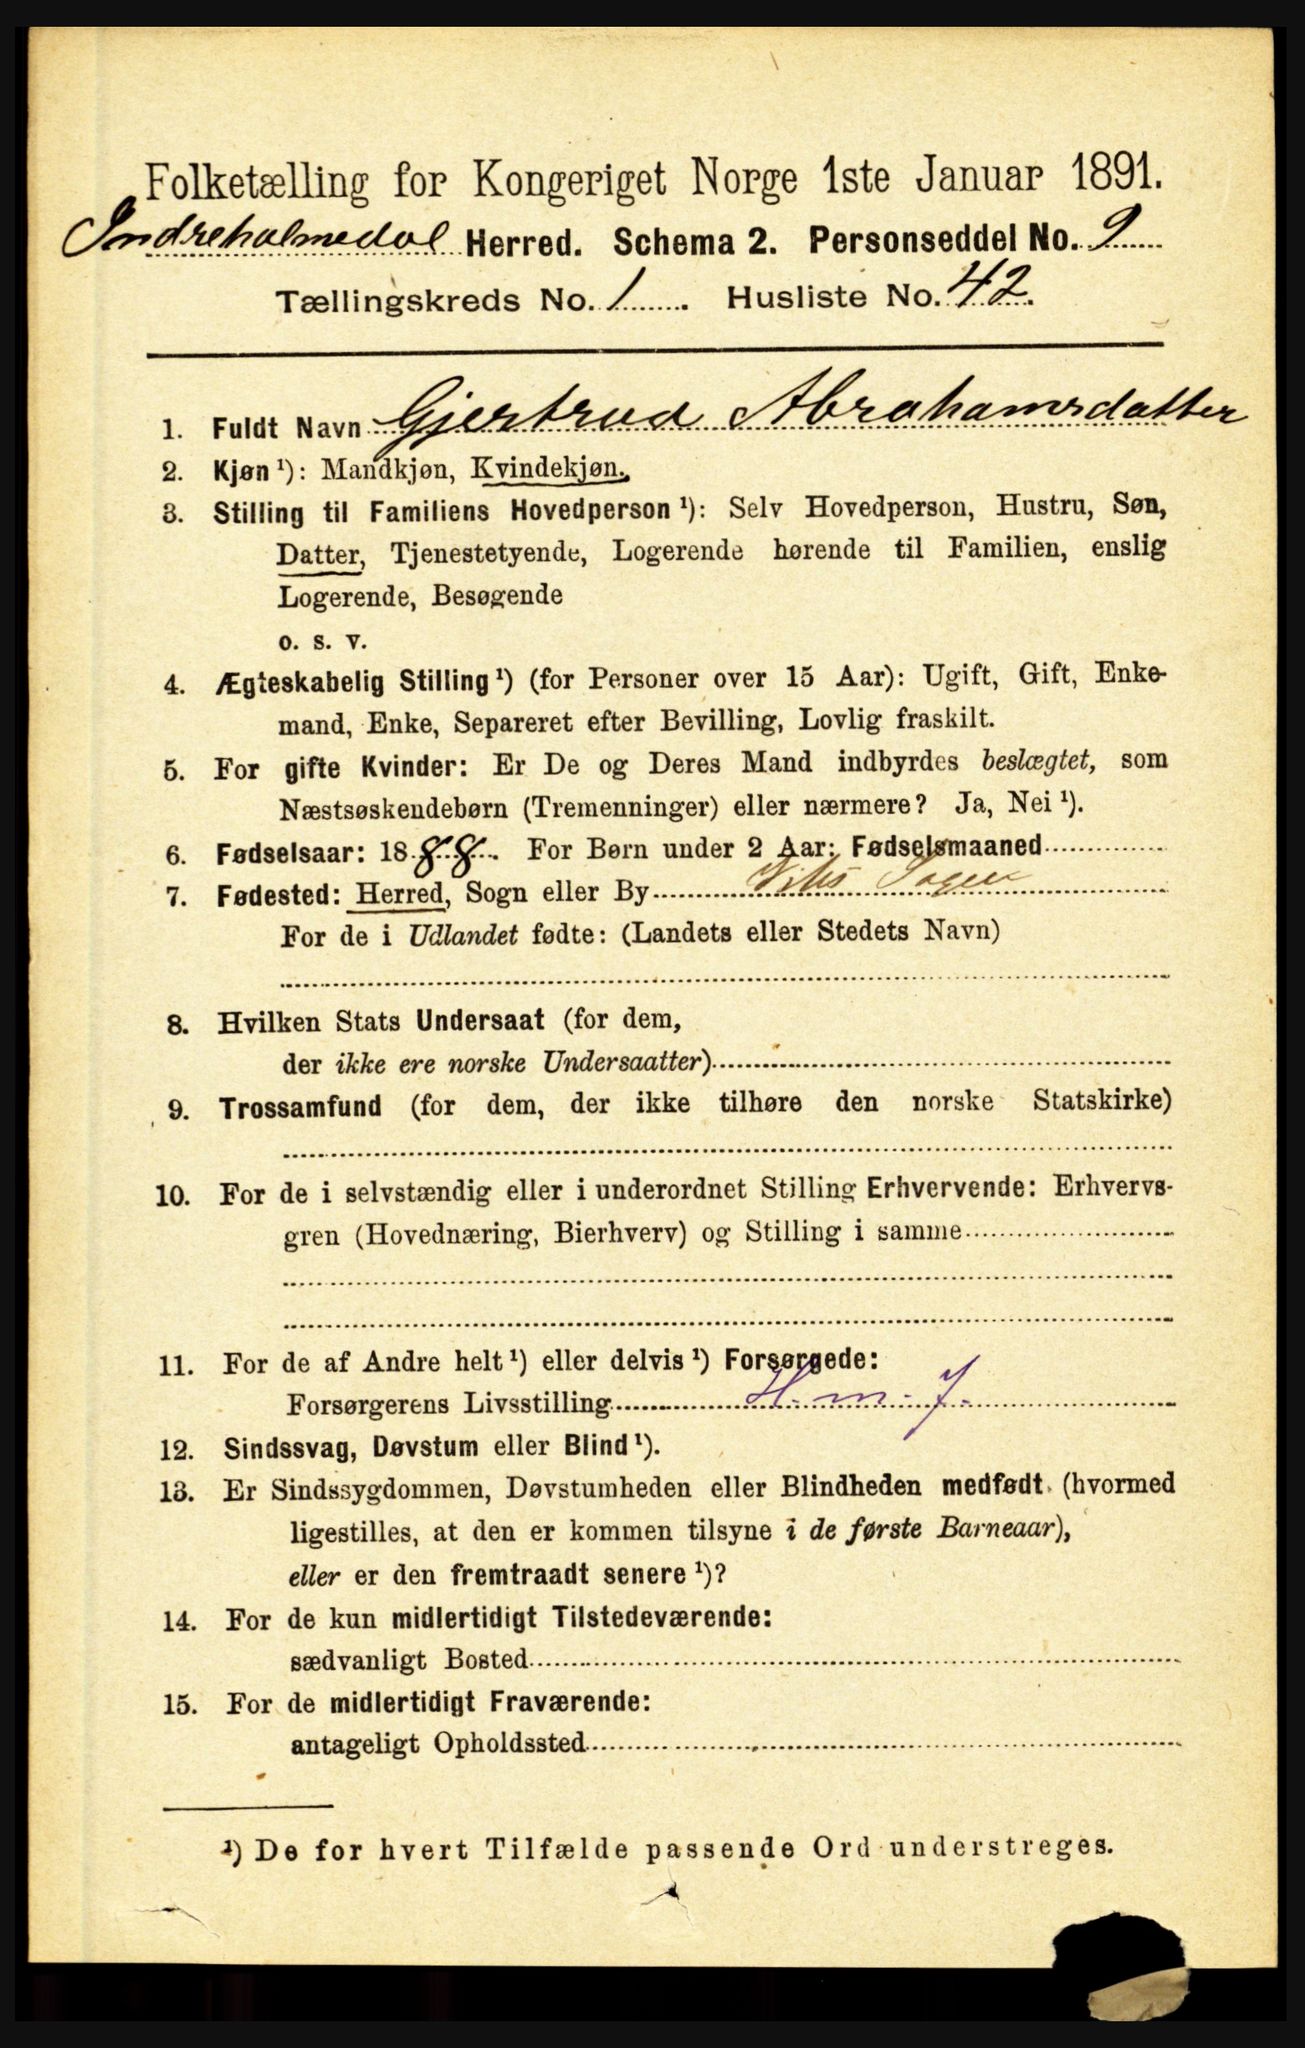 Folketælling for Kongeriget Norge 1ste Januar 1891.
Indreholmedal Herred. Schema 2. Personseddel No. 9
Tællingskreds No. 1. Husliste No. 42.
1. Fuldt Navn Gjertrud Abrahamsdatter
2. Kjøn ¹): Mandkjøn, Kvindekjøn.
3. Stilling til Familiens Hovedperson ¹): Selv Hovedperson, Hustru, Søn,
Datter, Tjenestetyende, Logerende hørende til Familien, enslig
Logerende, Besøgende
o. s. v.
4. Ægteskabelig Stilling ¹) (for Personer over 15 Aar): Ugift, Gift, Enke-
mand, Enke, Separeret efter Bevilling, Lovlig fraskilt.
5. For gifte Kvinder: Er De og Deres Mand indbyrdes beslægtet, som
Næstsøskendebørn (Tremenninger) eller nærmere? Ja, Nei ¹).
6. Fødselsaar: 1888. For Børn under 2 Aar: Fødselsmaaned
7. Fødested: Herred, Sogn eller By
For de i Udlandet fødte: (Landets eller Stedets Navn)
8. Hvilken Stats Undersaat (for dem,
der ikke ere norske Undersaatter)
9. Trossamfund (for dem, der ikke tilhøre den norske Statskirke)
10. For de i selvstændig eller i underordnet Stilling Erhvervende: Erhvervs-
gren (Hovednæring, Bierhverv) og Stilling i samme
11. For de af Andre helt ¹) eller delvis ¹) Forsørgede:
Forsørgerens Livsstilling H. m. J.
12. Sindssvag, Døvstum eller Blind ¹).
13. Er Sindssygdommen, Døvstumheden eller Blindheden medfødt (hvormed
ligestilles, at den er kommen tilsyne i de første Barneaar),
eller er den fremtraadt senere ¹)?
14. For de kun midlertidigt Tilstedeværende:
sædvanligt Bosted
15. For de midlertidigt Fraværende:
antageligt Opholdssted
¹) De for hvert Tilfælde passende Ord understreges.